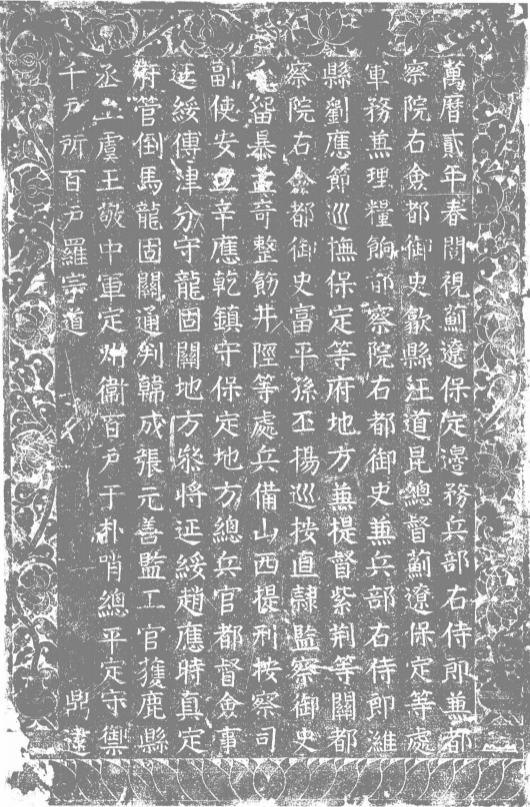 萬曆貳年春閱視薊遼保定邊務兵部右侍郎兼都
察院右僉都御史歙縣汪道昆總督薊遼保定等處
軍務兼理糧餉都察院右都御史兼兵部右侍郎維
縣劉應節巡撫保定等府地方兼提督紫荆等關都
察院右僉都御史富平孫丕揚巡按直隸監察御史
屯留暴孟奇整飭井陘等處兵備山西提刑按察司
副使安丘辛應乾鎮守保定地方總兵官都督僉事
延綏傅津分守龍固關地方叅將延綏趙應時真定
府管倒馬龍固關通判韓成張元善監工官獲鹿縣
丞上虞王敬中軍定州衛百户于朴哨總平定守禦
千户所百户羅宗道 鼎建